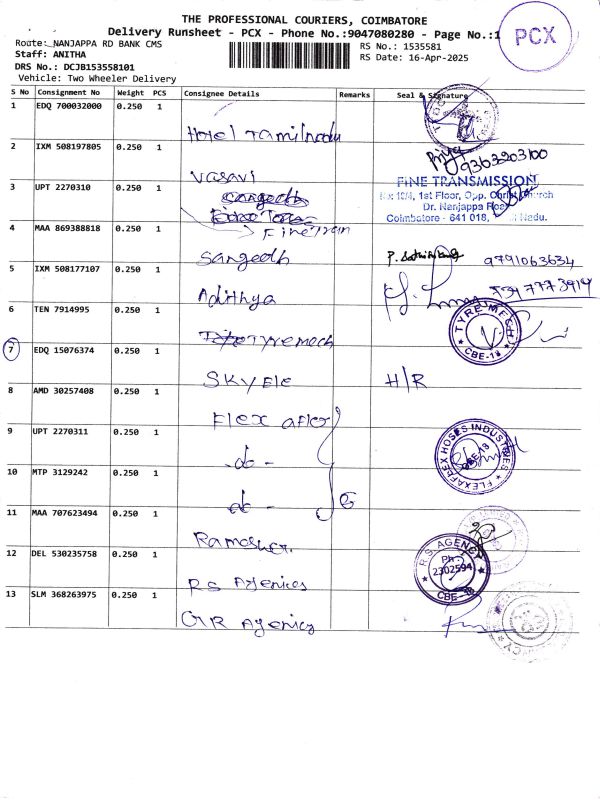 THE PROFESSIONAL COURIERS, COIMBATORE
Delivery Runsheet - PCX - Phone No.:9047080280 - Page No.:1
PCX
Route: NANJAPPA RD BANK CMS
RS No.: 1535581
Staff: ANITHA
RS Date: 16-Apr-2025
DRS No.: DCJB153558101
Vehicle: Two Wheeler Delivery
S No Consignment No Weight PCS Consignee Details Remarks Seal & Signature
1 EDQ 700032000 0.250 1 Hotel Tamilnadu
2 IXM 508197805 0.250 1 Vasavi Priya 9363203100
3 UPT 2270310 0.250 1 Sangeedh
FineTran
FINE TRANSMISSION
1st Floor, Opp. Christ Church
Dr. Nanjappa Road
Coimbatore - 641 018, Nadu.
4 MAA 869388818 0.250 1 Sangeedh 9791063634
5 IXM 508177107 0.250 1 Adithya
6 TEN 7914995 0.250 1 Tyremech
TYRE MECH
CBE-18
7 EDQ 15076374 0.250 1 SkyEle H/R
8 AMD 30257408 0.250 1 Flex aflex
9 UPT 2270311 0.250 1 -do-
FLEXAFLEX HOSES INDUSTRIES
CBE-18
10 MTP 3129242 0.250 1 -do-
11 MAA 707623494 0.250 1
12 DEL 530235758 0.250 1 RS Agenices
R.S. AGENCY
Ph:
2302594
CBE-18
13 SLM 368263975 0.250 1 GR Agenicy